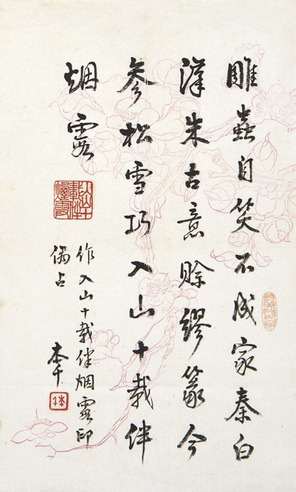 雕蟲自笑不成家秦白
漢朱古意賒繆篆今
參松雪巧入山十載伴
烟霞
作入山十載伴烟霞印
偶占